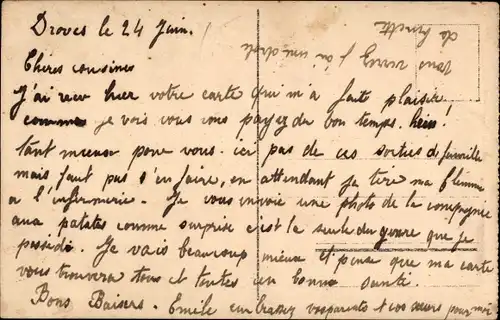 Droves le 24 Juin.
Chères cousines
J'ai reçu hier votre carte qui m'a faite plaisir,
comme je vois vous vous payez du bon temps. hein!
tant mieux pour vous. ici pas de ces sorties de famille
mais faut pas s'en faire, en attendant je tire ma flemme
a l'infirmerie. Je vous envoie une photo de la compagnie
aux patates comme surprise c'est la seule du genre que je
possède. Je vais beaucoup mieux et pense que ma carte
vous trouvera tous et toutes en bonne santé.
Bons Baisers. Emile embrassez vos parents et vos sœurs pour moi
vous verrez j'ai une drole
de binette